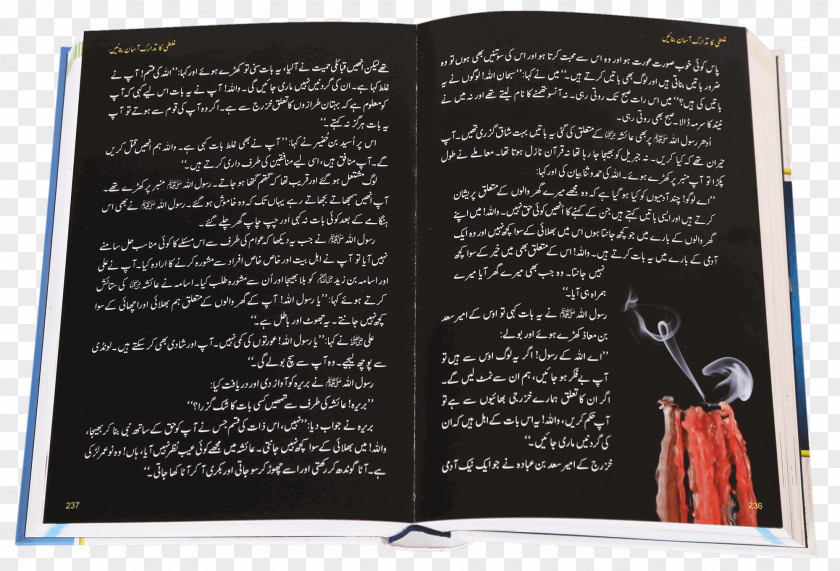 غلطی کا تدارک آسان بنائیں
پاس کوئی خوب صورت عورت ہو اور وہ اس سے محبت کرتا ہو اور اس کی سوتنیں بھی ہوں تو وہ
ضرور باتیں بناتی ہیں اور لوگ بھی باتیں کرتے ہیں۔“ میں نے کہا: ”سبحان اللہ! لوگوں نے یہ
باتیں کی ہیں؟“ میں اس رات صبح تک روتی رہی۔ نہ آنسو تھمنے کا نام لیتے تھے اور نہ میں نے
نیند کا سرمہ ڈالا۔ صبح بھی روتی رہی۔
اُدھر رسول اللہ ﷺ پر بھی عائشہ کے متعلق کی گئی یہ باتیں بہت شاق گزری تھیں۔ آپ
حیران تھے کہ کیا کریں۔ نہ جبریل کو بھیجا جا رہا تھا نہ قرآن نازل ہوتا تھا۔ معاملے نے طول
پکڑا تو آپ منبر پر کھڑے ہوئے۔ اللہ کی حمد و ثنا بیان کی اور کہا:
”اے لوگو! چند آدمیوں کو کیا ہو گیا ہے کہ وہ مجھے میرے گھر والوں کے متعلق پریشان
کرتے ہیں اور ایسی باتیں کہتے ہیں جن کے کہنے کا انھیں کوئی حق نہیں۔ واللہ! میں اپنے
گھر والوں کے بارے میں جو کچھ جانتا ہوں اس میں بھلائی کے سوا کچھ نہیں اور وہ ایک
آدمی کے بارے میں یہ بات کرتے ہیں۔ واللہ! اس کے متعلق بھی میں خیر کے سوا کچھ
نہیں جانتا۔ وہ جب بھی میرے گھر آیا میرے
ہمراہ ہی آیا۔“
رسول اللہ ﷺ نے یہ بات کہی تو اوس کے امیر سعد
بن معاذ کھڑے ہوئے اور بولے:
”اے اللہ کے رسول! اگر یہ لوگ اوس سے ہیں تو
آپ بے فکر ہو جائیں، ہم ان سے نمٹ لیں گے۔
اگر ان کا تعلق ہمارے خزرجی بھائیوں سے ہے تو
آپ حکم کریں، واللہ! یہ اس بات کے اہل ہیں کہ ان
کی گردنیں ماری جائیں۔“
خزرج کے امیر سعد بن عبادہ نے جو ایک نیک آدمی
236
غلطی کا تدارک آسان بنائیں
تھے لیکن انھیں قبائلی حمیت نے آ لیا، یہ بات سنی تو کھڑے ہوئے اور کہا: ”اللہ کی قسم! آپ نے
غلط کہا ہے۔ ان کی گردنیں نہیں ماری جائیں گی۔ واللہ! آپ نے یہ بات اس لیے کہی کہ آپ
کو معلوم ہے کہ بہتان طرازوں کا تعلق خزرج سے ہے۔ اگر وہ آپ کی قوم سے ہوتے تو آپ
یہ بات ہرگز نہ کہتے۔“
اس پر اسید بن حضیر نے کہا: ”آپ نے بھی غلط بات کہی ہے۔ واللہ ہم انھیں قتل کریں
گے۔ آپ منافق ہیں، اسی لیے منافقین کی طرف داری کرتے ہیں۔“
لوگ مشتعل ہو گئے اور قریب تھا کہ گتھم گتھا ہو جاتے۔ رسول اللہ ﷺ منبر پر کھڑے تھے۔
آپ انھیں سمجھاتے بجھاتے رہے یہاں تک کہ وہ خاموش ہو گئے۔ رسول اللہ ﷺ نے بھی اس
ہنگامے کے بعد کوئی بات نہ کہی اور چپ چاپ گھر چلے گئے۔
رسول اللہ ﷺ نے جب یہ دیکھا کہ عوام کی طرف سے اس مسئلے کا کوئی مناسب حل سامنے
نہیں آیا تو آپ نے اہل بیت اور خاص خاص افراد سے مشورہ کرنے کا ارادہ کیا۔ آپ نے علی
اور اسامہ بن زید کو بلا بھیجا اور اُن سے مشورہ طلب کیا۔ اسامہ نے عائشہ کی ستائش
کرتے ہوئے کہا: ”یا رسول اللہ! آپ کے گھر والوں کے متعلق ہم بھلائی اور اچھائی کے سوا
کچھ نہیں جانتے۔ یہ جھوٹ اور باطل ہے۔“
علی نے کہا: ”یا رسول اللہ! عورتوں کی کمی نہیں۔ آپ اور شادی بھی کر سکتے ہیں۔ لونڈی
سے پوچھ لیجیے۔ وہ آپ سے سچ بولے گی۔“
رسول اللہ ﷺ نے بریرہ کو آواز دی اور دریافت کیا:
”بریرہ! عائشہ کی طرف سے تمھیں کسی بات کا شک گزرا؟“
بریرہ نے جواب دیا: ”نہیں، اس ذات کی قسم جس نے آپ کو حق کے ساتھ نبی بنا کر بھیجا،
واللہ! میں بھلائی کے سوا کچھ نہیں جانتی۔ عائشہ میں مجھے کوئی عیب نظر نہیں آیا، ہاں! وہ نو عمر لڑکی
ہے۔ آٹا گوندھ کر رکھتی اور اسے چھوڑ کر سو جاتی اور بکری آ کر آٹا کھا جاتی۔“
237